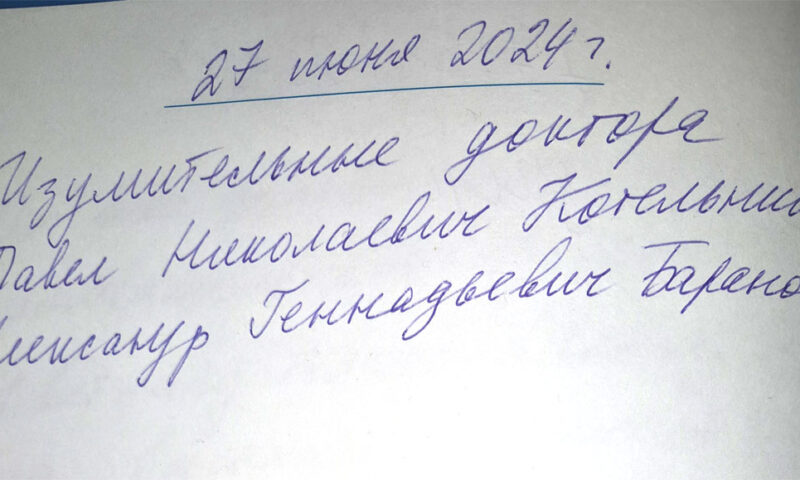 27 июня 2024 г.
Изумительные доктора
Павел Николаевич Котельни
лександр Геннадьевич Барано